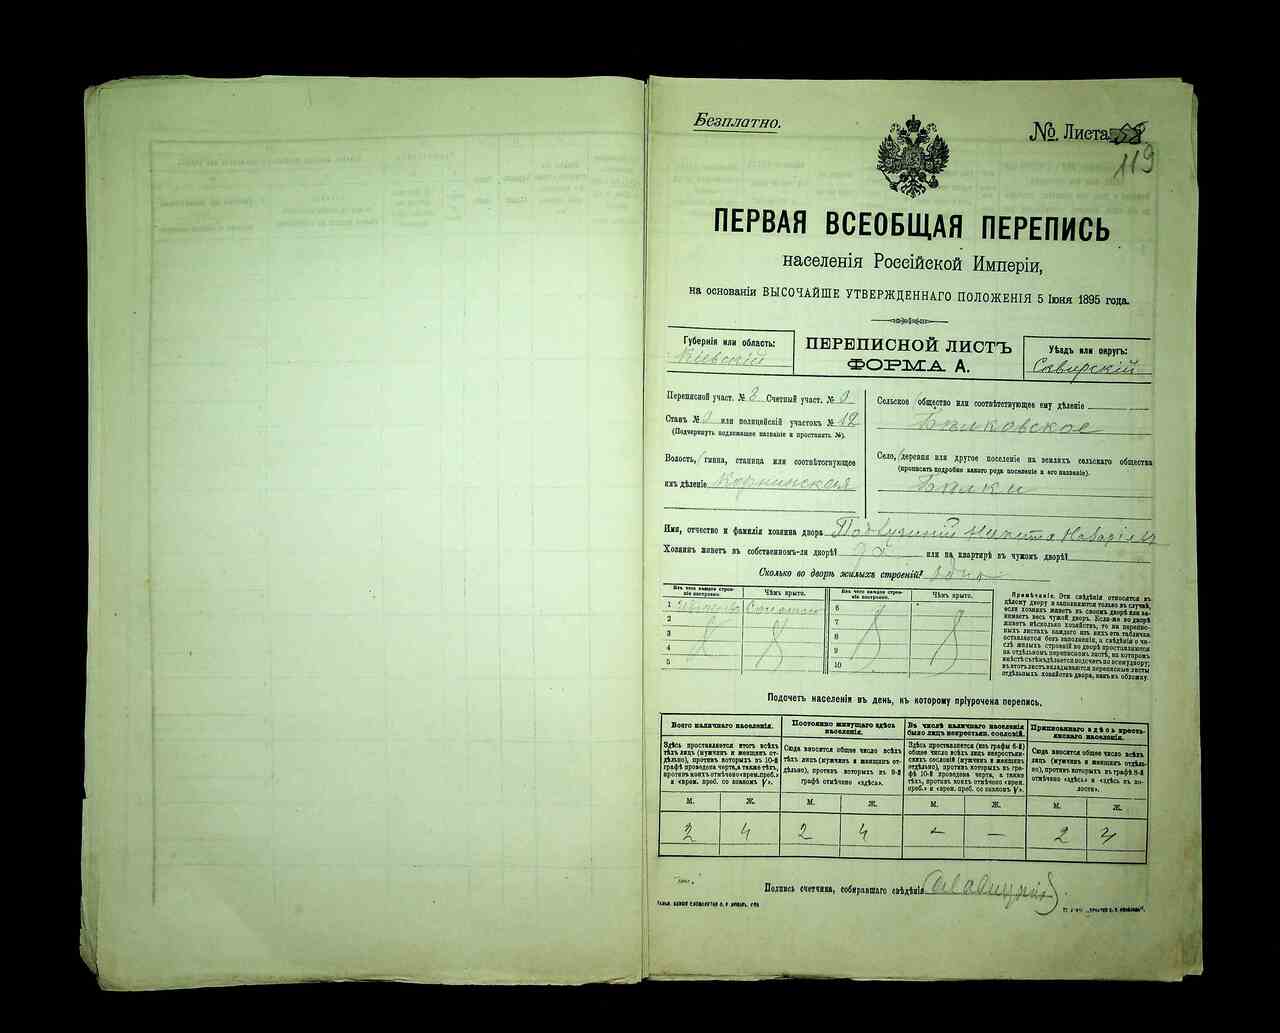 Безплатно.
№ Листа 58
119
ПЕРВАЯ ВСЕОБЩАЯ ПЕРЕПИСЬ
населенія Россійской Имперіи,
на основаніи ВЫСОЧАЙШЕ УТВЕРЖДЕННАГО ПОЛОЖЕНІЯ 5 Іюня 1895 года.
Губернія или область:
Кіевскій
ПЕРЕПИСНОЙ ЛИСТЪ
ФОРМА А.
Уѣздъ или округъ:
Сквирскій
Переписной участ. № 8 Счетный участ. №
Станъ № или полицейскій участокъ № 12
(Подчеркнуть подлежащее названіе и проставить №).
Волость, гмина, станица или соотвѣтствующее
имъ дѣленіе Корнинская
Сельское общество или соотвѣтствующее ему дѣленіе
Бѣлковское
Село, деревня или другое поселеніе на земляхъ сельскаго общества
(прописать подробно какого рода поселеніе и его названіе).
Бѣлки
Имя, отчество и фамилія хозяина двора Никита
Хозяинъ живетъ въ собственномъ-ли дворѣ? да или на квартирѣ въ чужомъ дворѣ?
Сколько во дворѣ жилыхъ строеній? одно
Изъ чего каждое строеніе построено.
Чѣмъ крыто.
Изъ чего каждое строеніе построено.
Чѣмъ крыто.
1 Соломой
2
3
4
5
6
7
8
9
10
Примѣчаніе. Эти свѣдѣнія относятся къ
цѣлому двору и заполняются только въ случаѣ,
если хозяинъ живетъ въ своемъ дворѣ или занимаетъ
весь чужой дворъ. Если-же во дворѣ
живетъ нѣсколько хозяйствъ, то на переписныхъ
листахъ каждаго изъ нихъ эта табличка
оставляется безъ заполненія, а свѣдѣнія о числѣ
жилыхъ строеній во дворѣ проставляются
на отдѣльномъ переписномъ листѣ, на которомъ
вмѣстѣ съ тѣмъ дѣлается подсчетъ по всему двору;
въ этотъ листъ вкладываются переписные листы
отдѣльныхъ хозяйствъ двора, какъ въ обложку.
Подсчетъ населенія въ день, къ которому пріурочена перепись.
Всего наличнаго населенія.
Здѣсь проставляется итогъ всѣхъ
лицъ (мужчинъ и женщинъ отдѣльно),
противъ которыхъ въ 10-й
графѣ проведена черта, а также тѣхъ,
противъ коихъ отмѣчено «врем. преб.»
и «врем. преб. со знакомъ V».
Постоянно живущаго здѣсь
населенія.
Сюда вносится общее число всѣхъ
тѣхъ лицъ (мужчинъ и женщинъ отдѣльно),
противъ которыхъ въ 9-й
графѣ отмѣчено «здѣсь».
Въ числѣ наличнаго населенія
было лицъ некрестьян. сословій.
Здѣсь проставляется (изъ графы 6-й)
общее число всѣхъ лицъ некрестьянскихъ
сословій (мужчинъ и женщинъ
отдѣльно), противъ которыхъ въ графѣ
10-й проведена черта, а также
тѣхъ, противъ коихъ отмѣчено «врем.
преб.» и «врем. преб. со знакомъ V».
Приписаннаго здѣсь крестьянскаго
населенія.
Сюда вносится общее число всѣхъ
лицъ (мужчинъ и женщинъ отдѣльно),
противъ которыхъ въ графѣ 8-й
отмѣчено «здѣсь» и «здѣсь въ волости».
М. Ж. М. Ж. М. Ж. М. Ж.
2 4 2 4 - - 2 4
Подпись счетчика, собиравшаго свѣдѣнія